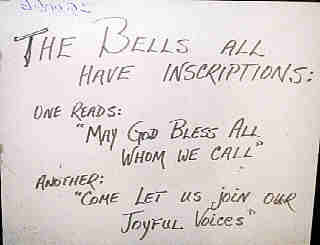 THE BELLS ALL
HAVE INSCRIPTIONS:
ONE READS:
"MAY GOD BLESS ALL
WHOM WE CALL"
ANOTHER:
"COME LET US JOIN OUR
JOYFUL VOICES"